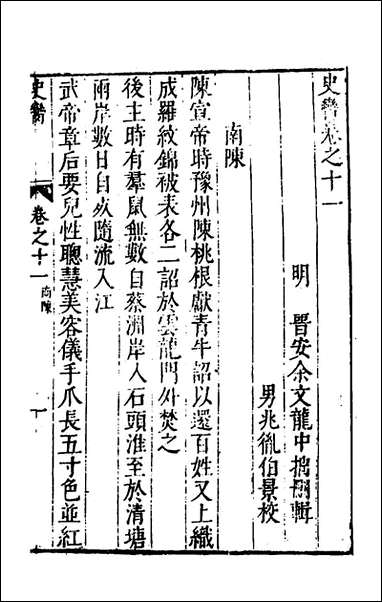 史臠卷之十一
明　晋安余文龍中拙刪輯
男兆胤伯景校
南陳
陳宣帝時豫州陳桃根獻青牛詔以還百姓又上織
成羅紋錦被表各二詔於雲龍門外焚之
後主時有羣鼠無數自蔡淵岸入石頭淮至於清塘
兩岸數日自死隨流入江
武帝章后要兒性聰慧美容儀手爪長五寸色並紅
史臠
卷之十一
南陳
一